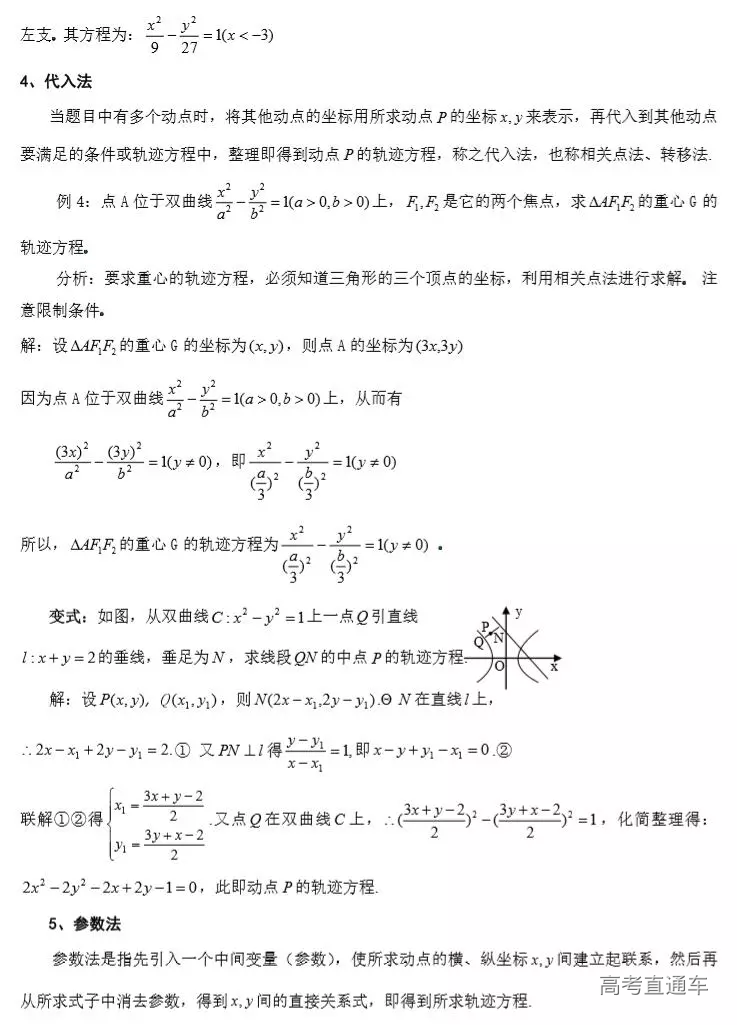 左支。其方程为：x²/9 − y²/27 = 1(x < −3)
4、代入法
当题目中有多个动点时，将其他动点的坐标用所求动点 P 的坐标 x, y 来表示，再代入到其他动点
要满足的条件或轨迹方程中，整理即得到动点 P 的轨迹方程，称之代入法，也称相关点法、转移法.
例 4：点 A 位于双曲线 x²/a² − y²/b² = 1(a > 0, b > 0) 上，F₁, F₂ 是它的两个焦点，求 ΔAF₁F₂ 的重心 G 的
轨迹方程。
分析：要求重心的轨迹方程，必须知道三角形的三个顶点的坐标，利用相关点法进行求解。 注
意限制条件。
解：设 ΔAF₁F₂ 的重心 G 的坐标为 (x, y)，则点 A 的坐标为 (3x,3y)
因为点 A 位于双曲线 x²/a² − y²/b² = 1(a > 0, b > 0) 上，从而有
(3x)²/a² − (3y)²/b² = 1(y ≠ 0)，即 x²/(a/3)² − y²/(b/3)² = 1(y ≠ 0)
所以，ΔAF₁F₂ 的重心 G 的轨迹方程为 x²/(a/3)² − y²/(b/3)² = 1(y ≠ 0) 。
变式：如图，从双曲线 C : x² − y² = 1 上一点 Q 引直线
l : x + y = 2 的垂线，垂足为 N，求线段 QN 的中点 P 的轨迹方程.
y
P
Q N
O x
解：设 P(x, y), Q(x₁, y₁)，则 N(2x − x₁,2y − y₁).Θ N 在直线 l 上，
∴ 2x − x₁ + 2y − y₁ = 2.① 又 PN ⊥ l 得 (y − y₁)/(x − x₁) = 1, 即 x − y + y₁ − x₁ = 0 .②
联解①②得 { x₁ = (3x + y − 2)/2 y₁ = (3y + x − 2)/2 .又点 Q 在双曲线 C 上，∴ ((3x + y − 2)/2)² − ((3y + x − 2)/2)² = 1，化简整理得：
2x² − 2y² − 2x + 2y − 1 = 0，此即动点 P 的轨迹方程.
5、参数法
参数法是指先引入一个中间变量（参数），使所求动点的横、纵坐标 x, y 间建立起联系，然后再
从所求式子中消去参数，得到 x, y 间的直接关系式，即得到所求轨迹方程.
高考直通车